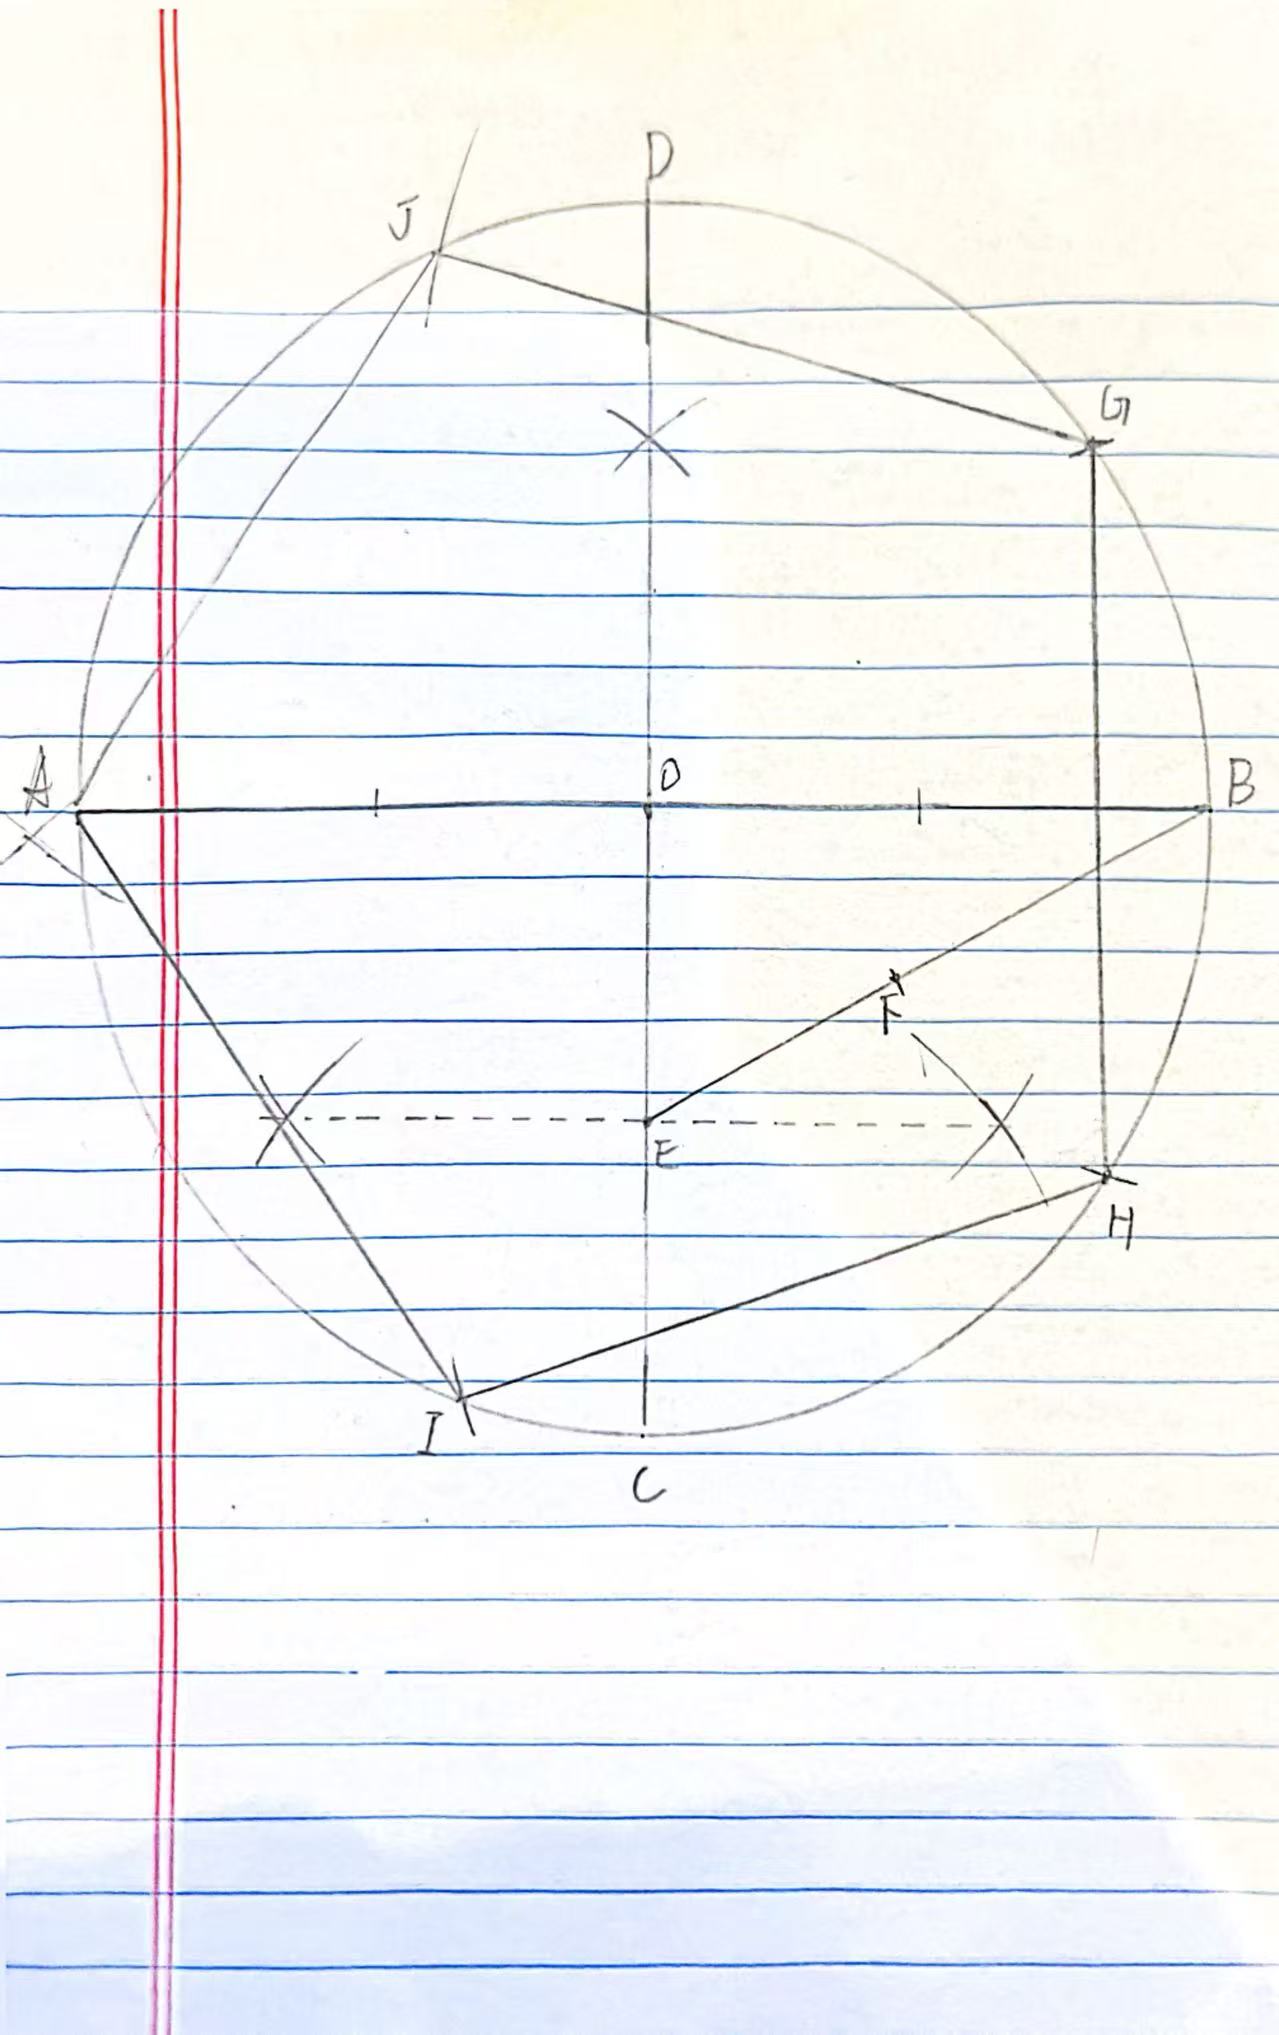 D
J
G
A
O
B
F
E
H
I
C